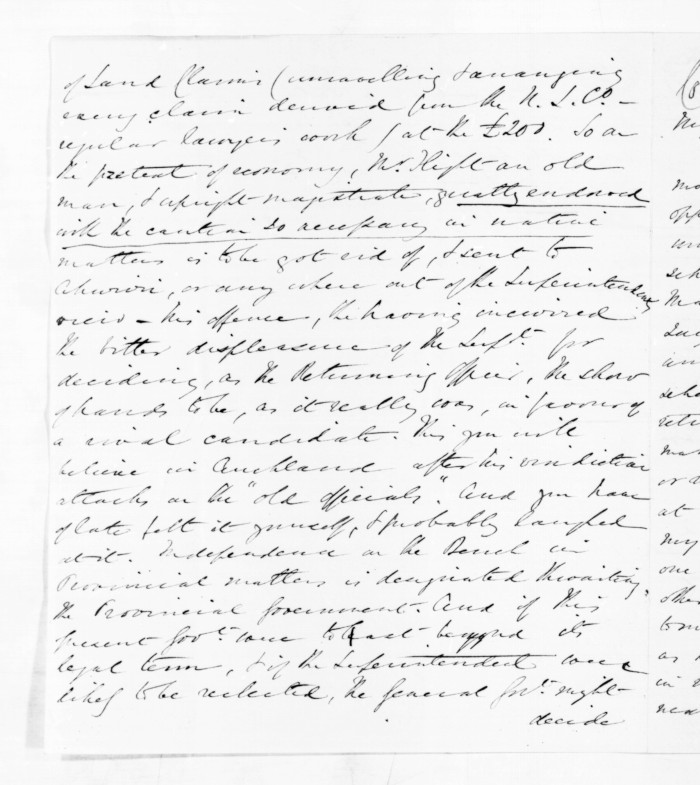 of Land Claims (unravelling & arranging
every claim derived from the N. Z. Co. –
regular lawyers work) at the £200. So on
the pretext of economy, Mr. Flight an old
man, & upright magistrate, greatly endowed
with the caution so necessary in native
matters is to be got rid of, & sent to
Ahuriri, or any where out of the Superintendents
view – his offence, the having incurred
the bitter displeasure of the Supt. for
deciding, as the Returning Officer, the show
of hands to be, as it really was, in favour of
a rival candidate. This you will
believe in Auckland after his vindictive
attacks on the "old officials". And you have
of late felt it yourself, & probably laughed
at it. Independence on the Bench in
Provincial matters is designated thwarting
the Provincial Government. And if this
present Govt. were to last beyond its
legal term, & if the Superintendent were
likely to be reelected, the General Govt. might
decide
(8
my
me
opp
un
sch
in
sche
retu
mat
or a
at
my
one
othe
to m
as
in
nea